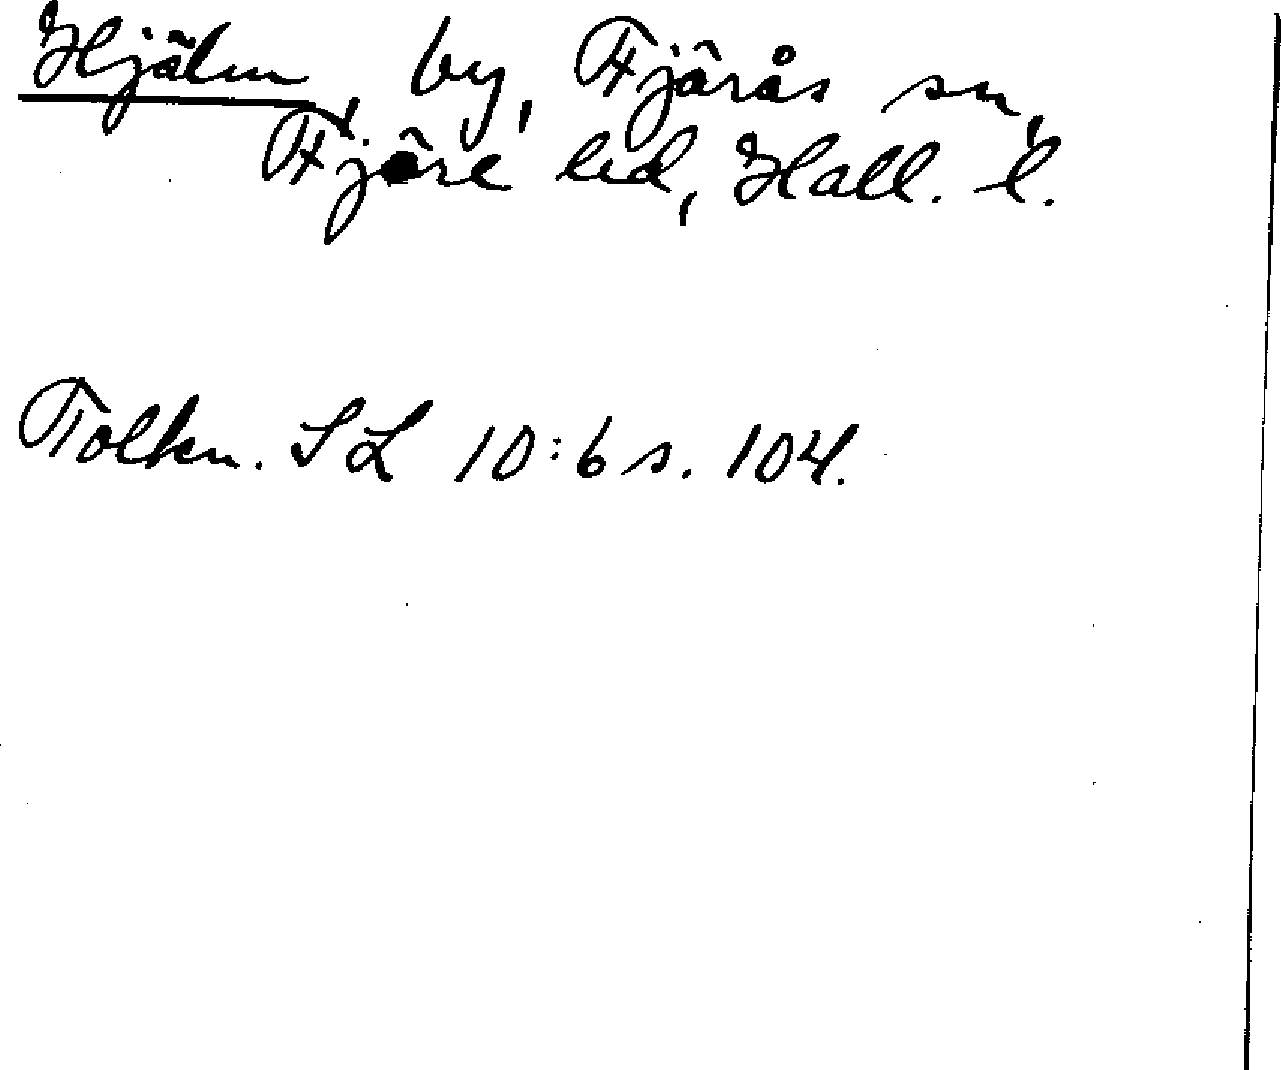 Hjälm, by, Fjärås sn,
Fjäre hd, Hall. l.
Tolkn. SL 10:6 s. 104.